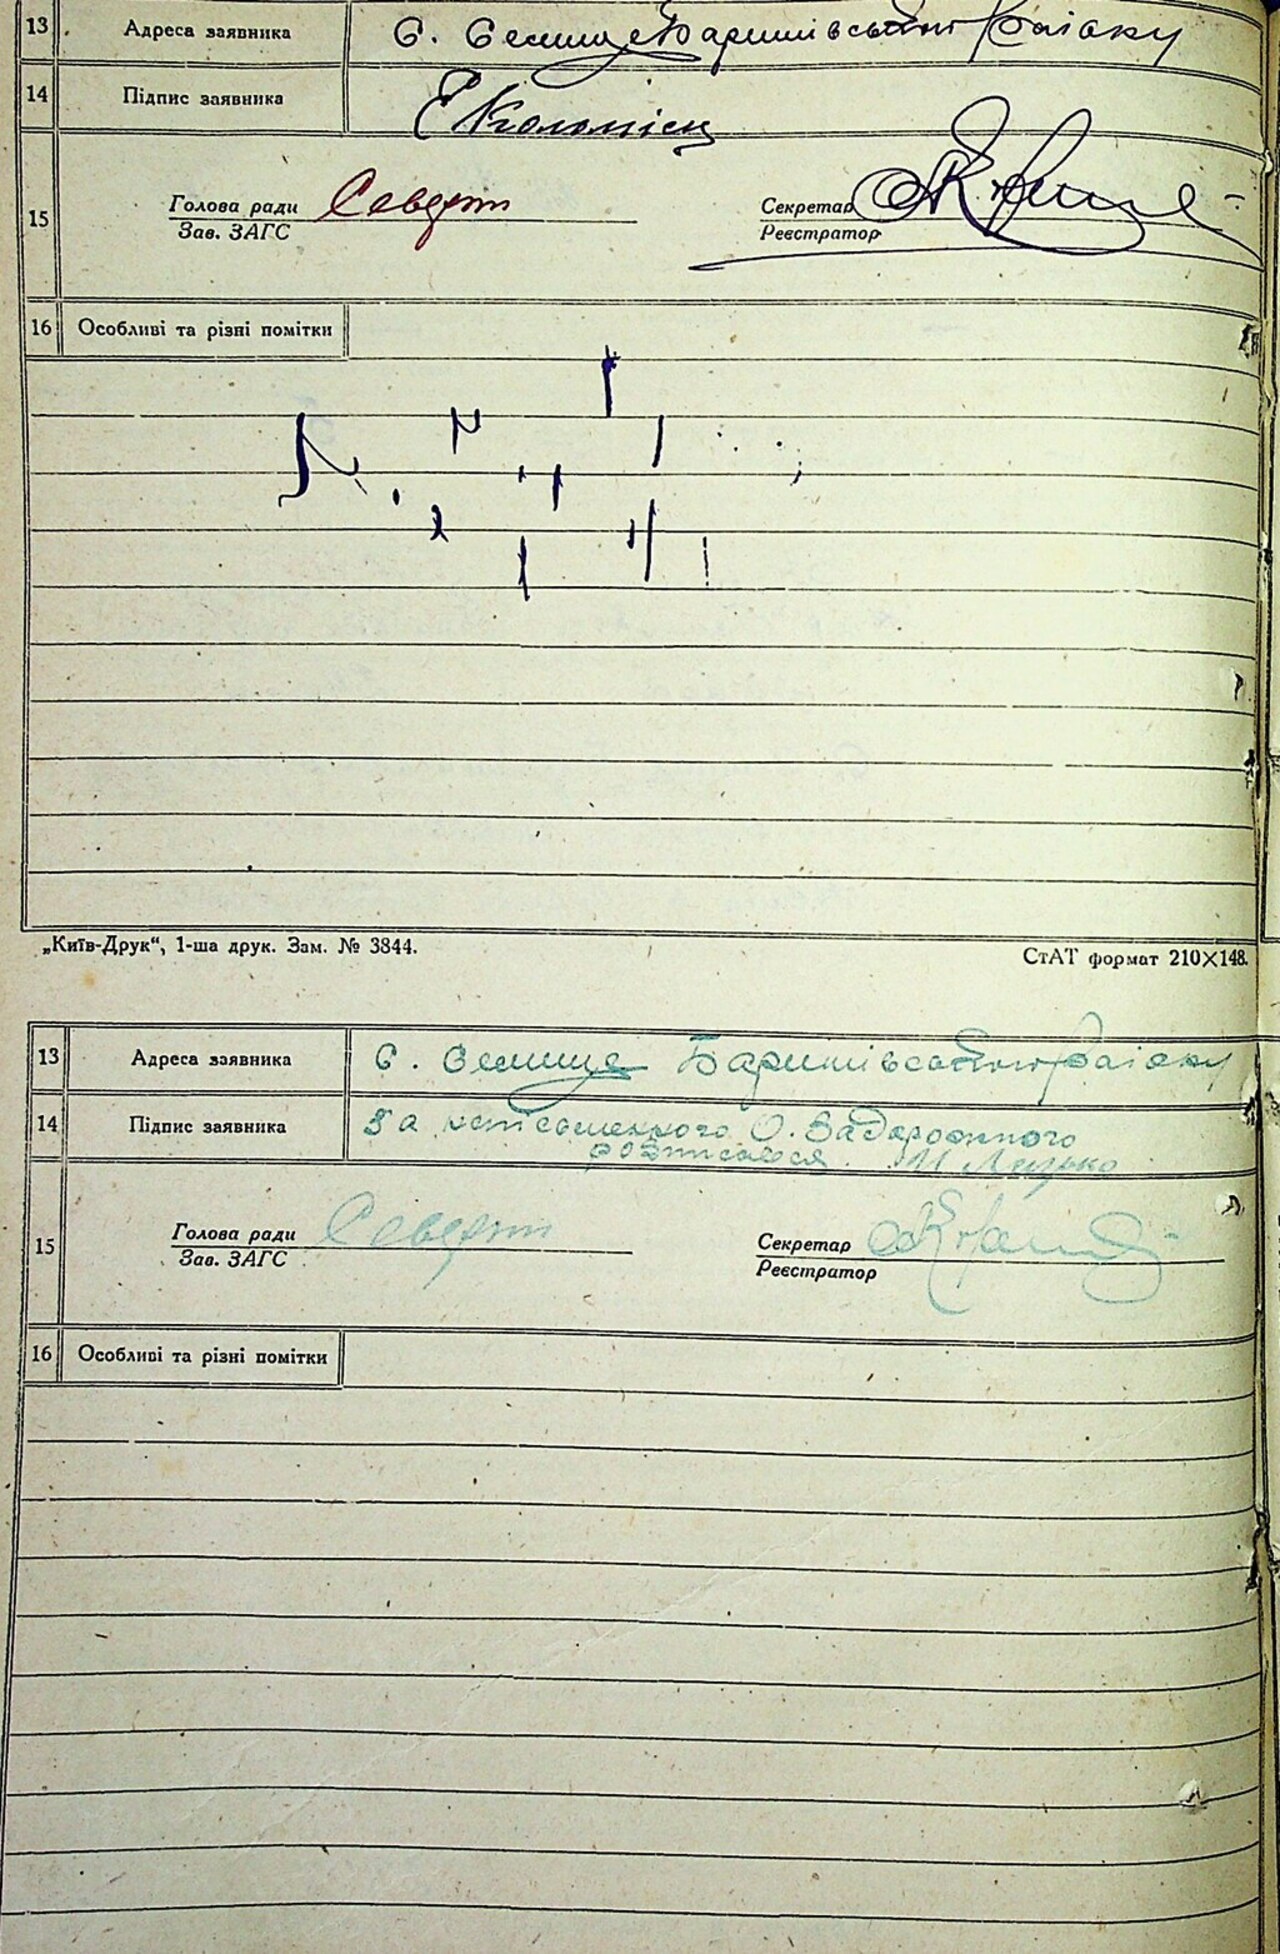 13 Адреса заявника с. Селище Баришівського району
14 Підпис заявника Є Коломієць
15 Голова ради
Зав. ЗАГС
Секретар
Реєстратор
16 Особливі та різні помітки
„Київ-Друк“, 1-ша друк. Зам. № 3844. СтАТ формат 210×148.
13 Адреса заявника с. Селище Баришівського району
14 Підпис заявника За неписьменного О. Задорожного
розписався
15 Голова ради
Зав. ЗАГС
Секретар
Реєстратор
16 Особливі та різні помітки